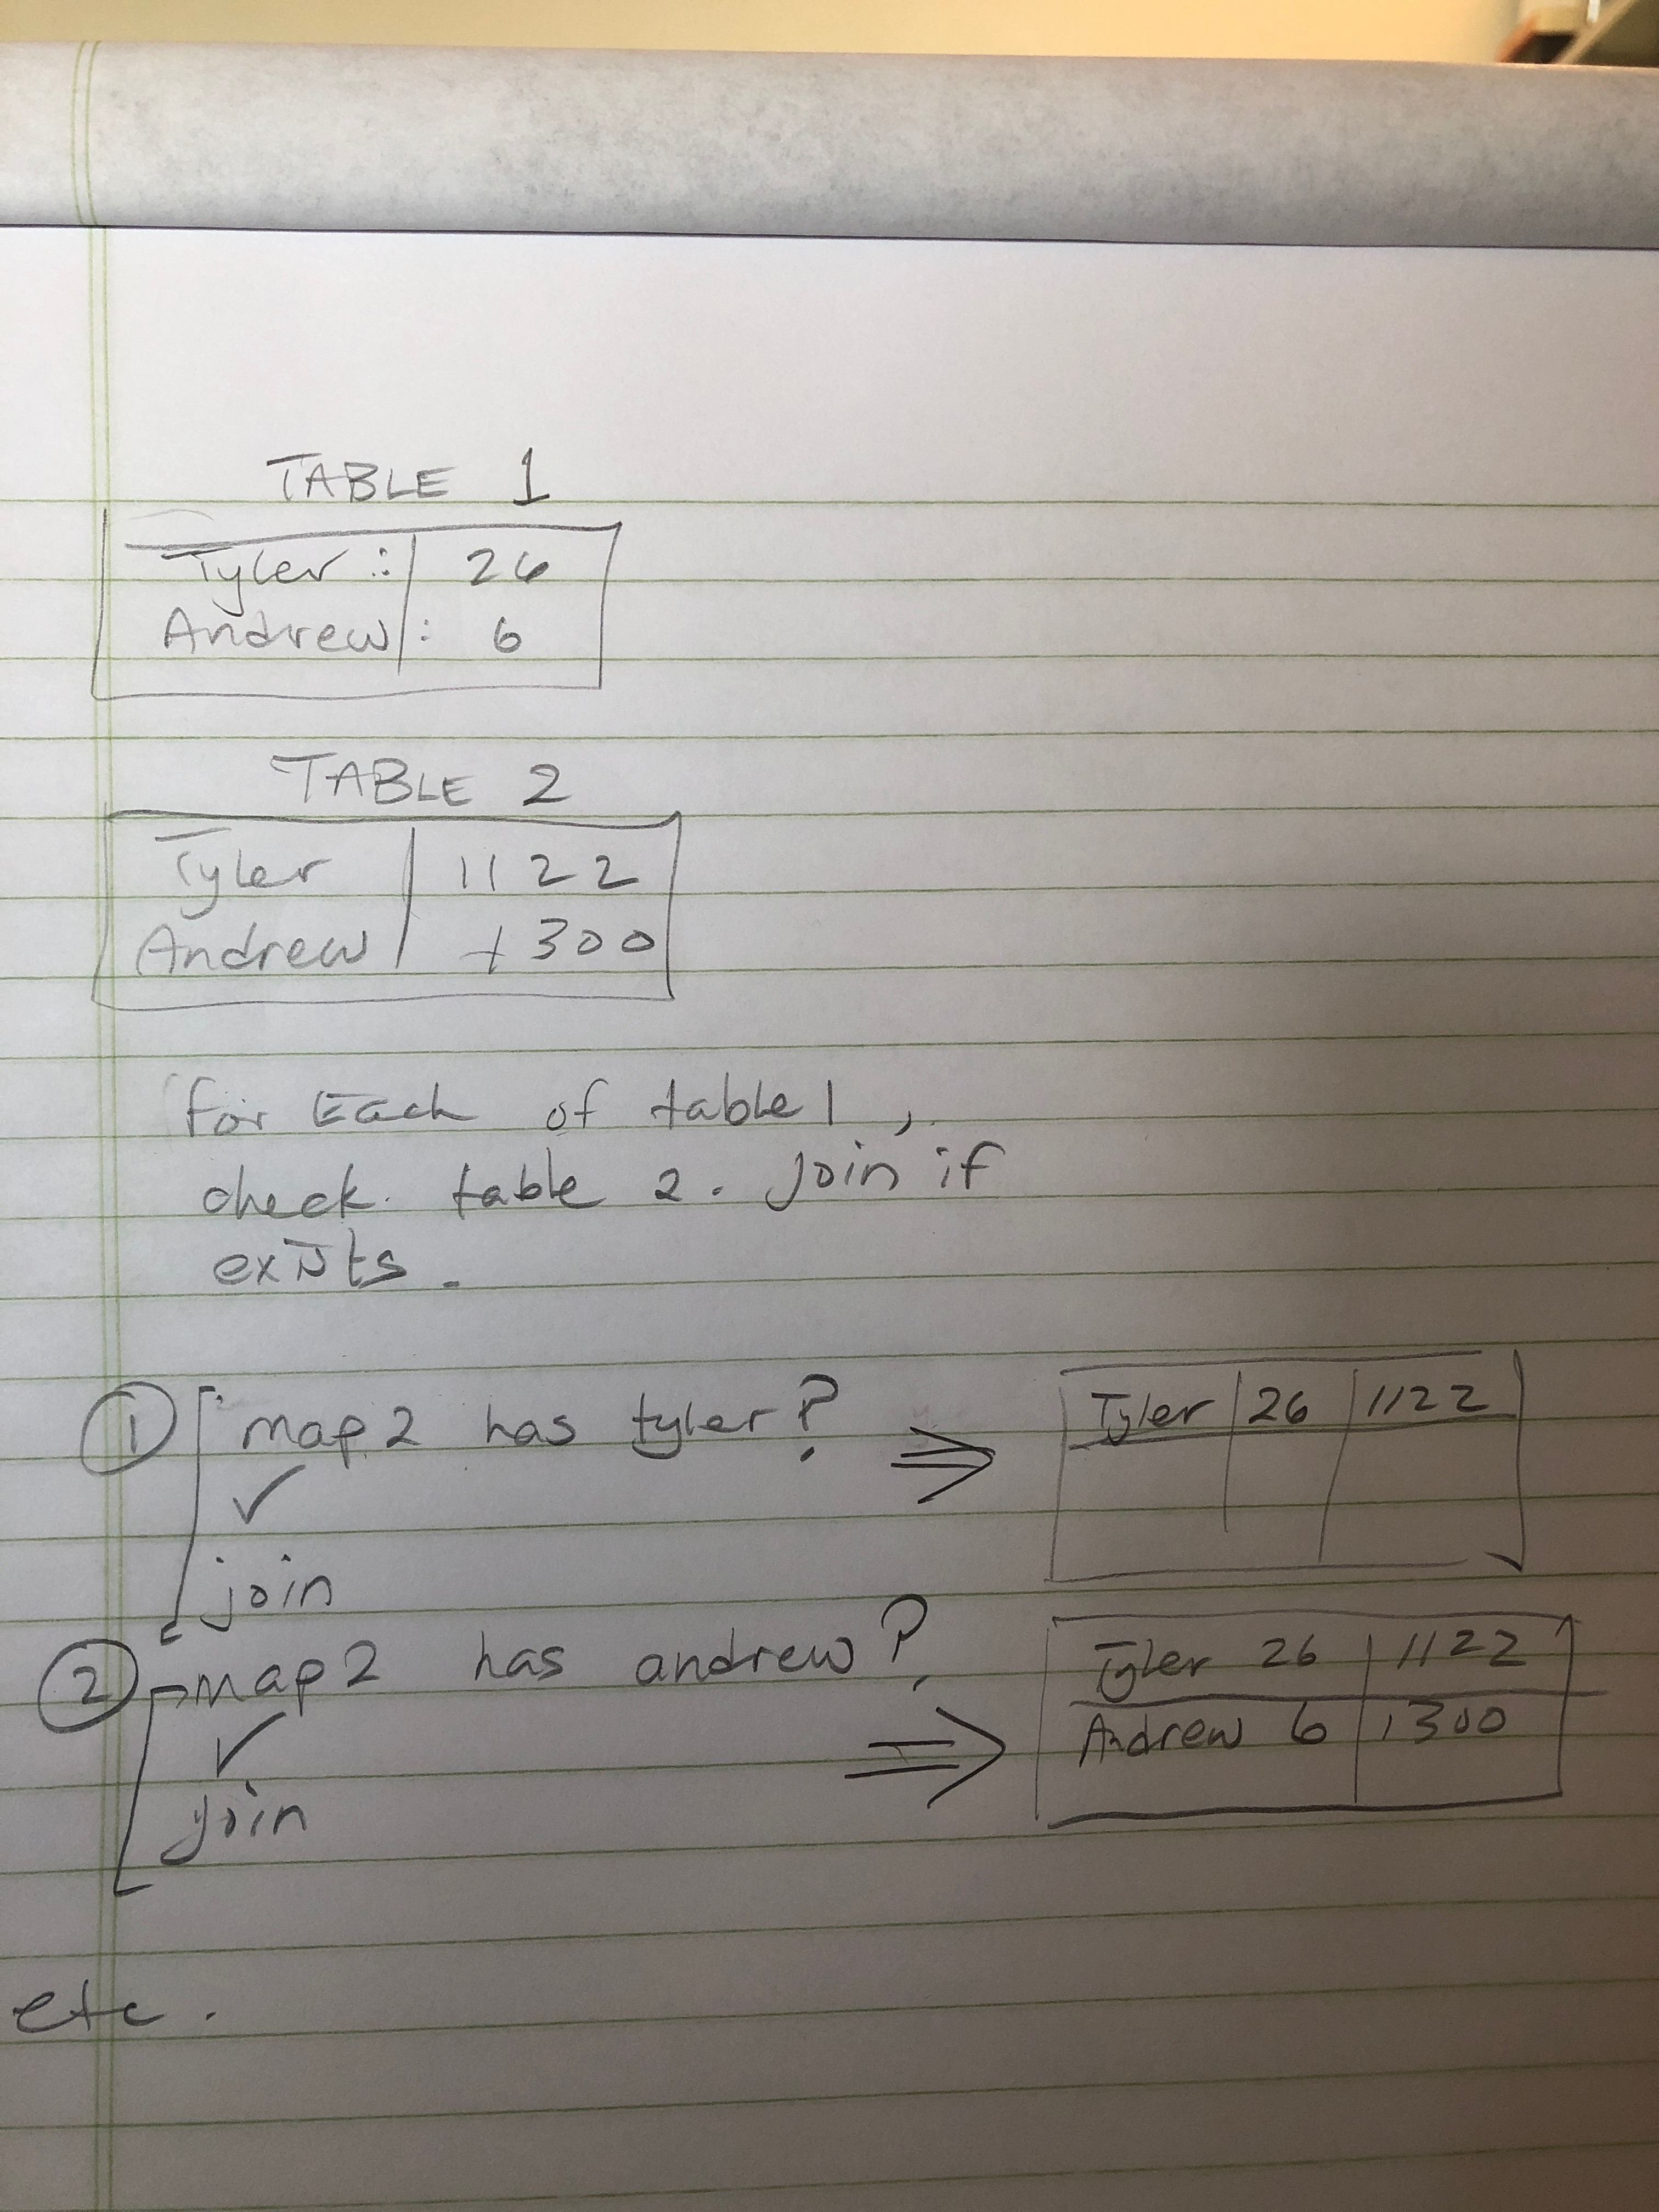 TABLE 1
Tyler : 26
Andrew : 6
TABLE 2
Tyler 1122
Andrew 1300
for Each of table 1,
check table 2. Join if
exists.
1 map2 has tyler? ⇒ Tyler 26 1122
✓
join
2 map2 has andrew? ⇒ Tyler 26 1122
Andrew 6 1300
✓
join
etc.